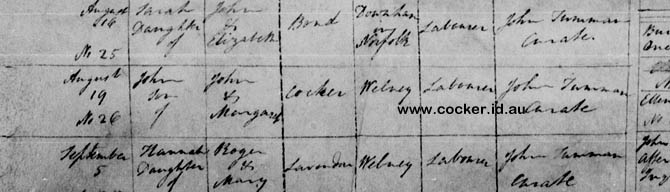 August Sarah John
16 Daughter & Bond Downham in Labourer John Tumman
No 25 of Elizabeth Norfolk Curate
August John John
19 Son & Cocker Welney Labourer John Tumman
No 26 of Margaret Curate
www.cocker.id.au
September Hannah Roger
5 Daughter & Lavender Welney Labourer John Tumman
of Mary Curate